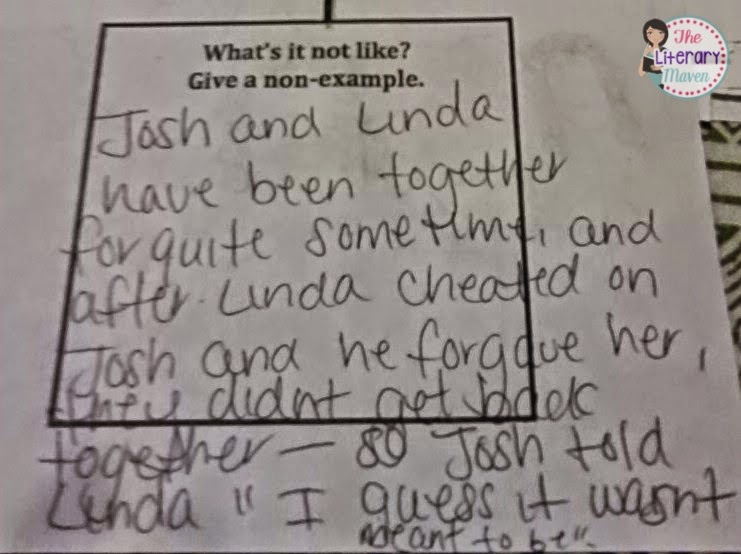 The
Literary
Maven
What's it not like?
Give a non-example.
Josh and Linda
have been together
for quite sometime, and
after. Linda cheated on
Josh and he forgave her,
they didnt get back
together — so Josh told
Linda " I guess it wasnt
meant to be".